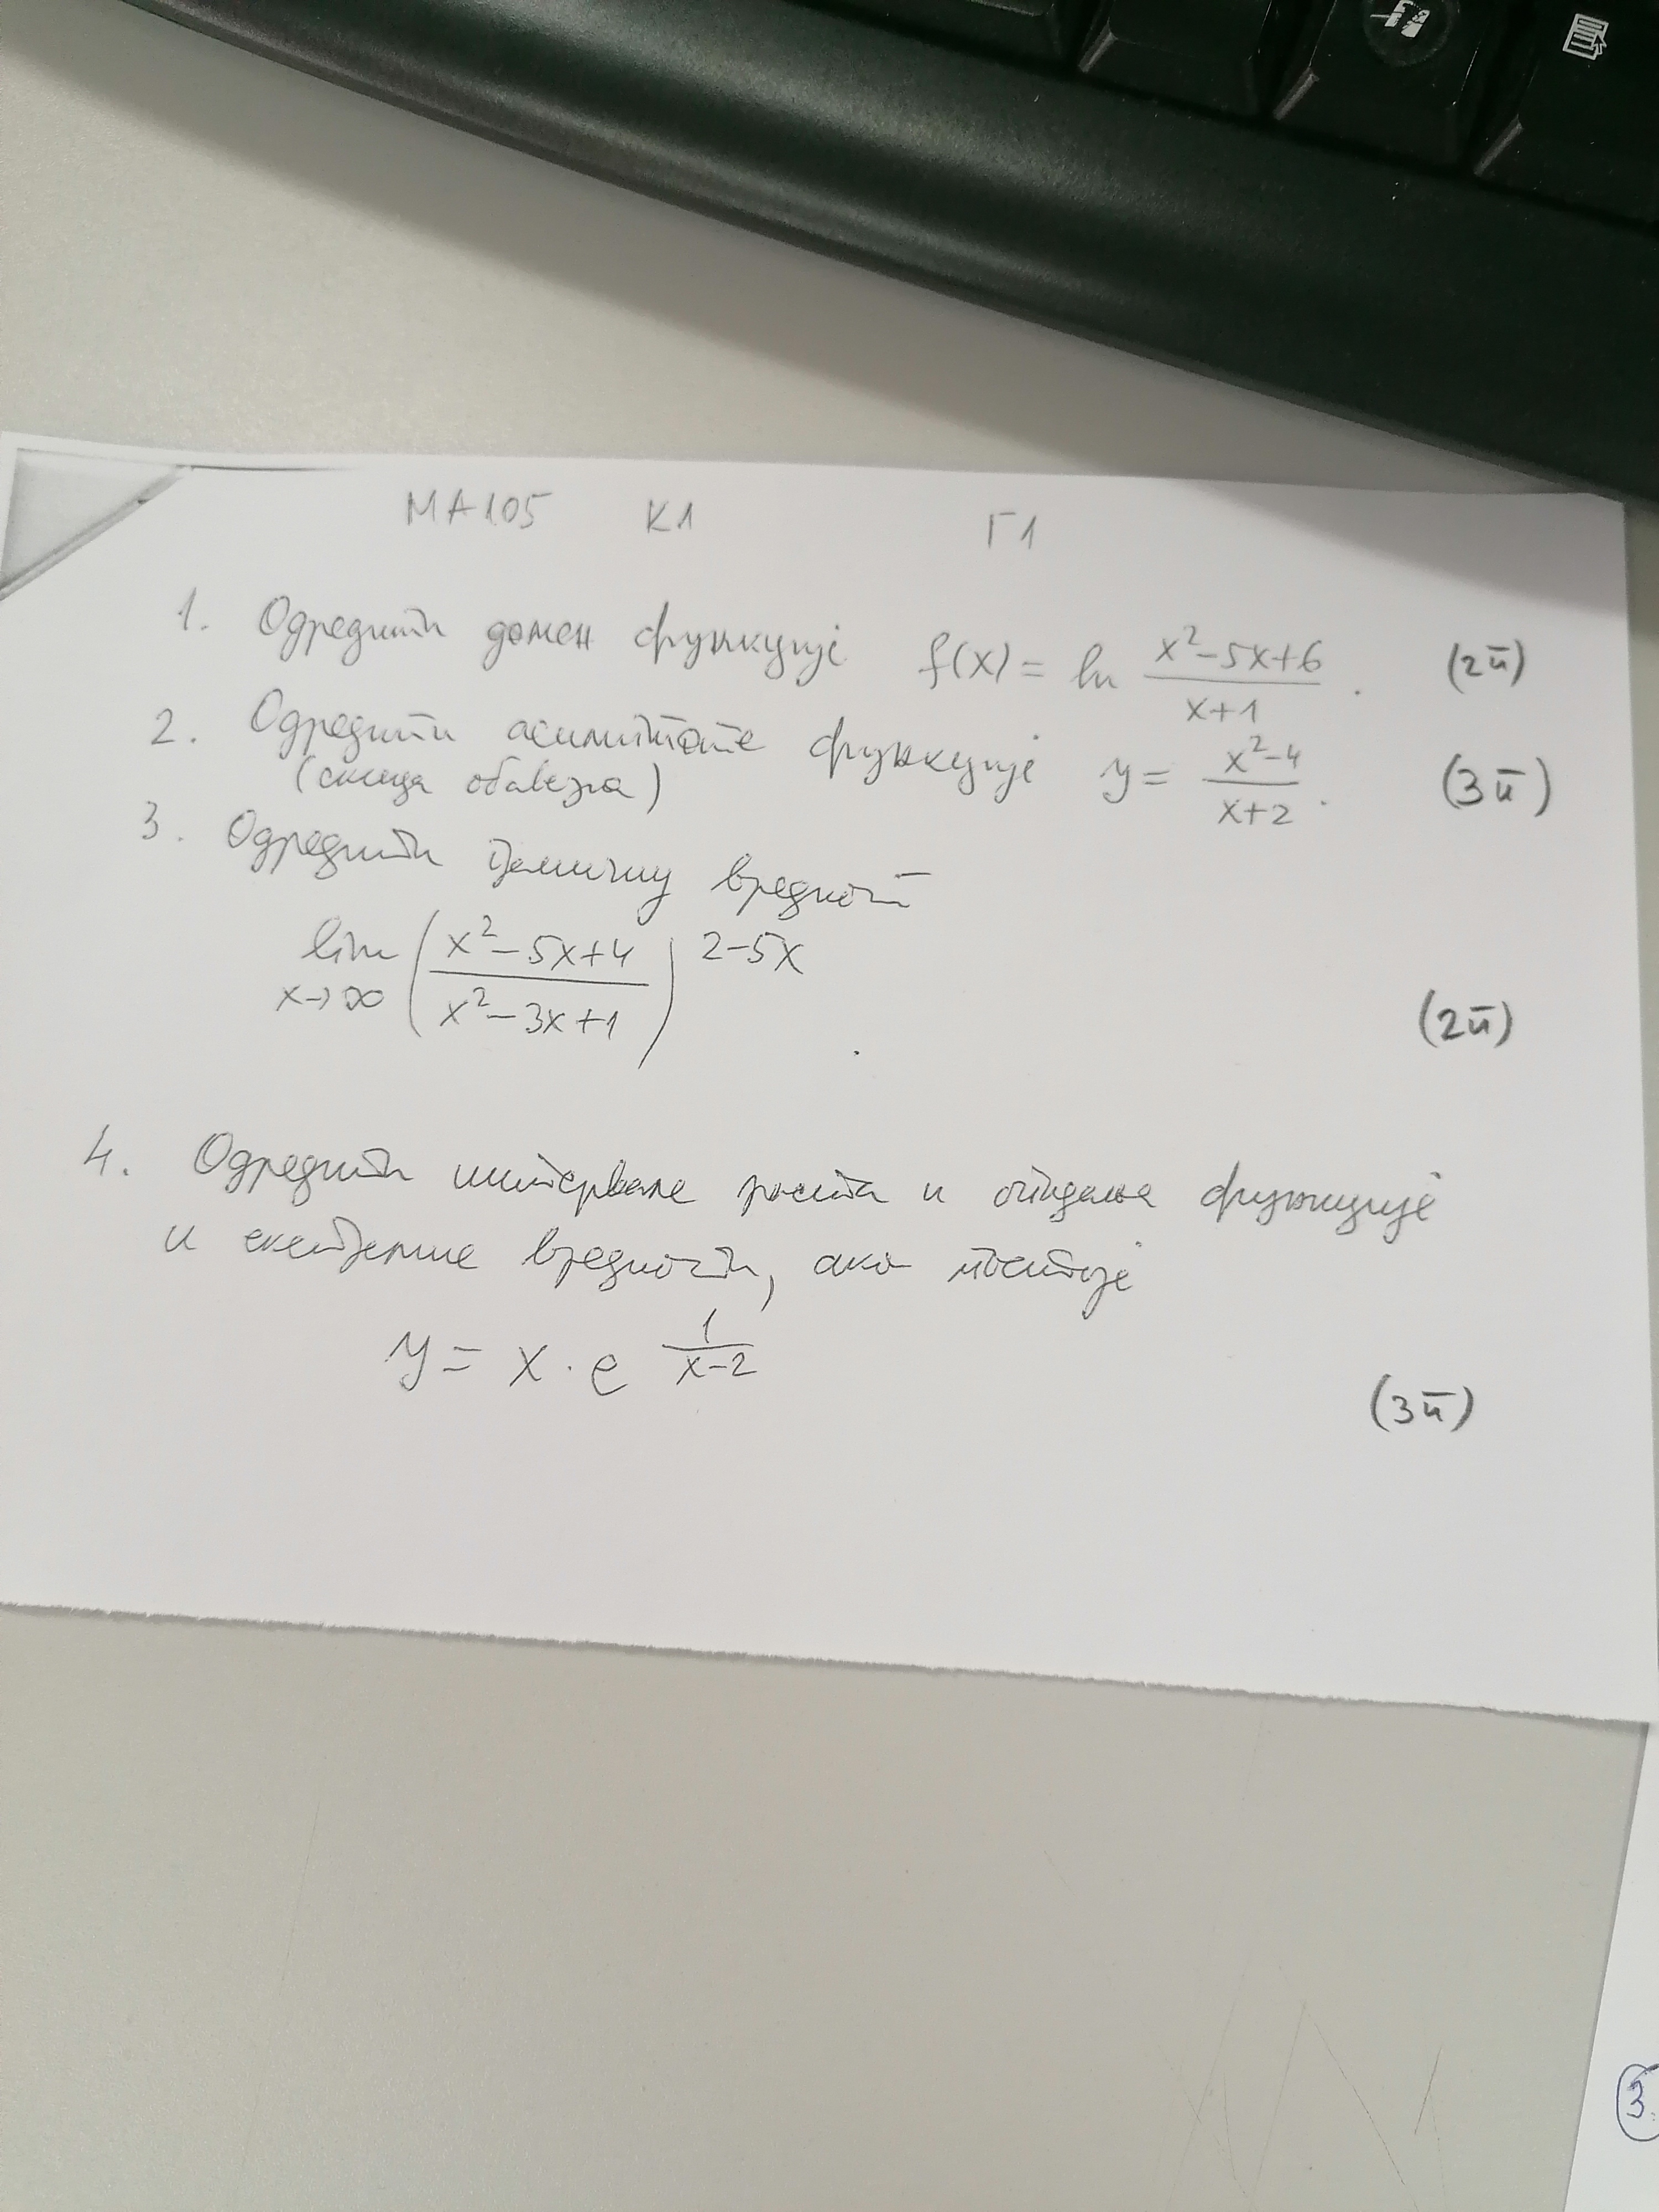 МА105 К1 Г1
1. Одредити домен функције f(x) = ln (x²-5x+6)/(x+1). (2п)
2. Одредити асимптоте функције y = (x²-4)/(x+2). (3п)
(скица обавезна)
3. Одредити граничну вредност
lim x→∞ ((x²-5x+4)/(x²-3x+1))^(2-5x) . (2п)
4. Одредити интервале раста и опадања функције
и екстремне вредности, ако постоје
y = x · e^(1/(x-2))
(3п)
3.